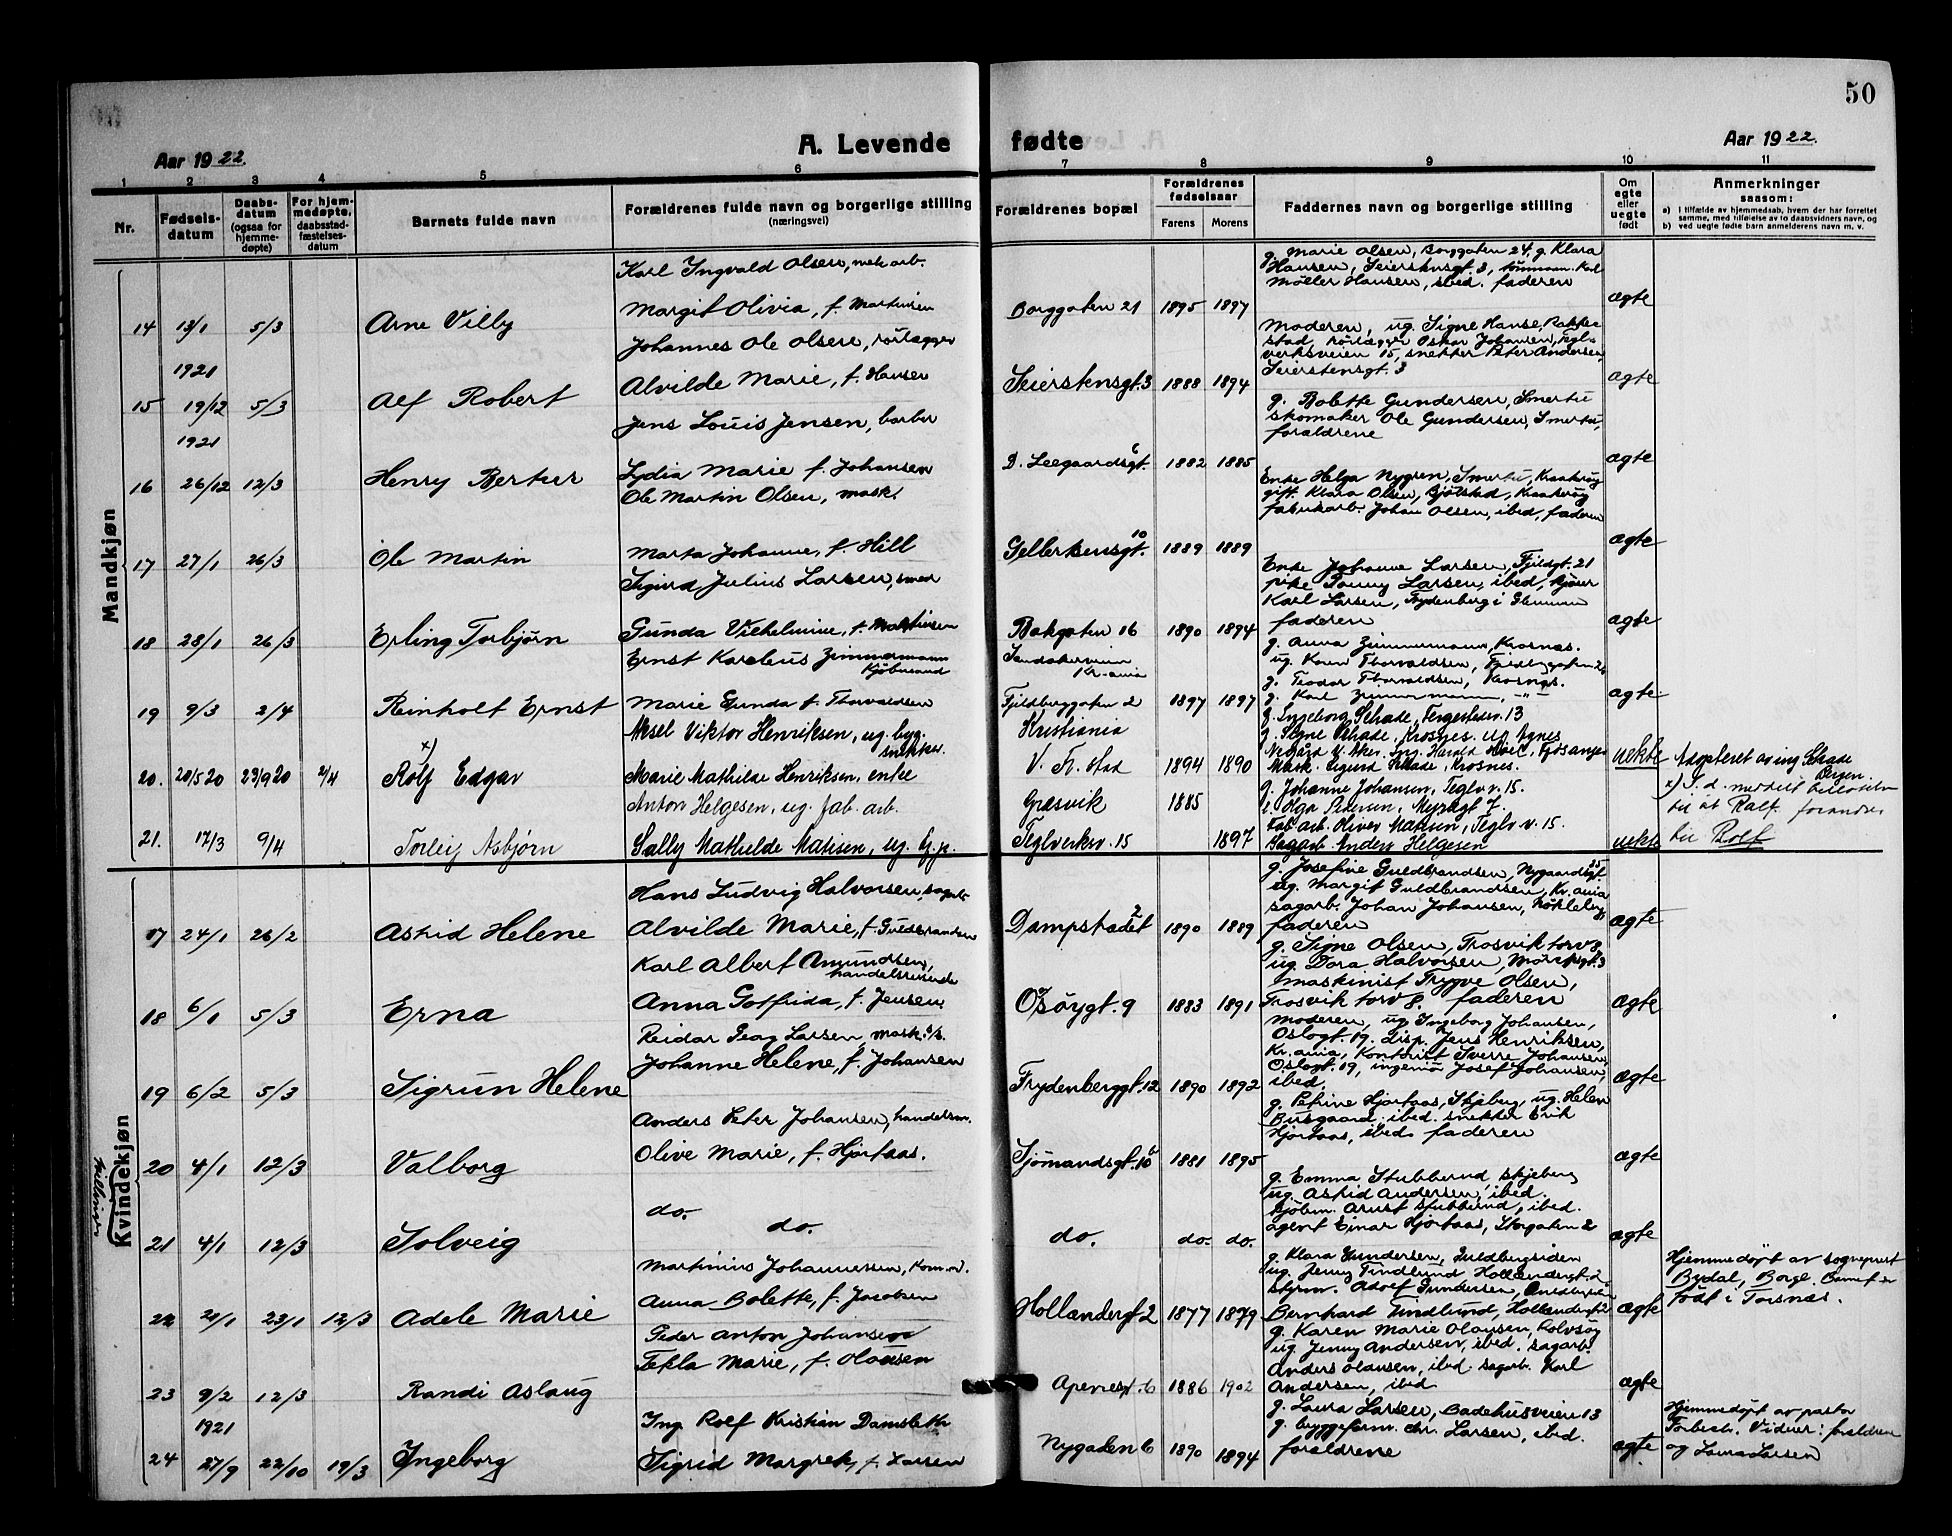 50
A. Levende fødte
Aar 1922.
Aar 1922.
1 2 3 4 5 6 7 8 9 10 11
Nr.
Fødsels-
datum
Daabs-
datum
(ogsaa for
hjemme-
døpte)
For hjem-
medøpte,
daabsstad-
fæstelses-
datum
Barnets fulde navn
Forældrenes fulde navn og borgerlige stilling
(næringsvei)
Forældrenes bopæl
Forældrenes
fødselsaar
Farens Morens
Faddernes navn og borgerlige stilling
Om
egte
eller
uegte
født
Anmerkninger
saasom:
a) I tilfælde av hjemmedaab, hvem der har forrettet
samme, med tilføielse av to daabsvidners navn, og
b) ved uegte fødte barn anmelderens navn m. v.
Mandkjøn
Karl Ingvald Olsen, mek. arb.
g. Marie Olsen, Borggaten 24, g. Klara
Hansen, Seierstensgt. 3, Karl
Møller Hansen, ibid. faderen
14 13/1 5/3 Arne Villy
Margit Olivia, f. Martinsen
Borggaten 21 1895 1897 ægte
Johannes Ole Olsen, rørlægger
Moderen, ug. Signe Hanse, Rakke-
stad, rørlægger Oskar Johansen, Tegl-
verksveien 15, snekker Peter Andersen,
Seierstensgt. 3
1921
15 19/12 5/3 Alf Robert
Alvilde Marie, f. Hansen
Seierstensgt. 3 1888 1894 ægte
Jens Louis Jensen, barber
g. Bolette Gundersen, Smertu
skomaker Ole Gundersen, Smertu,
forældrene
1921
16 26/12 12/3 Henry Berker
Lydia Marie f. Johansen
D. Leegaardsgt. 6 1882 1885 ægte
Ole Martin Olsen, mask.
Enke Helga Nygren, Smertu, Kraakerøy
gift. Klara Olsen, Bjølstad, Kraakerøy
fabrikarb. Johan Olsen, ibid, faderen
17 27/1 26/3 Ole Martin
Marta Johanne, f. Hill
Gellertsensgt. 10 1889 1889 ægte
Sigurd Julius Larsen, smed
Enke Johanne Larsen, Fjeldgt. 21
pike Larsen, ibid,
Karl Larsen, Frydenberg i Glemmen
faderen
18 28/1 26/3 Erling Torbjørn
Gunda Vilhelmine, f. Mathisen
Bakgaten 16 1890 1894 ægte
Ernst Karelius Zimmermann
Kjøbmand
Kr.ania
g. Anna Zimmermann, Krosnæs.
ug. Karen Thorvaldsen, Fjeldberggaten 2
g. Teodor Thorvaldsen, Krosnæs.
g. Karl Zimmermann, -"-
19 9/3 2/4 Reinholt Ernst
Marie Gunda f. Thorvaldsen
Fjeldberggaten 2 1897 1897 ægte
Aksel Viktor Henriksen, ug. byg.
snekker.
Kristiania
g. Ingeborg Schade, Fergestedsv. 13
g. Signe Schade, Krosnes. ug. Agnes
V. Aker. Ing. Harald Fjøsanger
Mask. Sigurd Schade, Krosnes.
x)
20. 20/5 20 23/9 20 2/4 Rolf Edgar
Marie Mathilde Henriksen, enke
V. Fr.stad 1894 1890 uekte
Adopteret av ing. Schade
Bergen.
x) J. d. meddelt bevilling
til at Ralf forandres
til Rolf
Anton Helgesen, ug. fab. arb.
Græsvik 1885
g. Johanne Johansen, Teglv. v. 15.
e. Olga Petersen, Myragt 7.
Fab. arb. Oliver Matisen, Teglv. v. 15.
Sagarb. Anders Helgesen
21. 17/3 9/4 Torleif Asbjørn
Sally Mathilde Matisen, ug. Hj.
Teglverksv. 15 1897 uekte
Kvindekjøn
Hans Ludvig Halvorsen, sagarb.
g. Josefine Guldbrandsen, Nygaardsgt. 35
ug. Margit Guldbrandsen, Kr.ania
sagarb. Johan Johansen, Røkleberg,
faderen
17 24/1 26/2 Astrid Helene
Alvilde Marie, f. Guldbrandsen
Dampstadet 2 1890 1889 ægte
Karl Albert Amundsen,
handelsreisende
g. Signe Olsen, Trosvik torv 8
ug. Dora Halvorsen, 3
maskinist Trygve Olsen,
Trosvik torv 8. faderen
18 6/1 5/3 Erna
Anna Gotfrida, f. Jensen.
Oksøygt. 9 1883 1891 ægte
Reidar Georg Larsen, mask.
Moderen, ug. Ingeborg Johansen,
Oslogt. 19. Disp. Jens Henriksen,
Kr.ania, Kontorist Sverre Johansen,
Oslogt. 19, ingeniør Josef Johansen,
ibid.
19 6/2 5/3 Sigrun Helene
Johanne Helene, f. Johansen
Frydenberggt. 12 1890 1892 ægte
Anders Peter Johansen, handelsm.
g. Petrine Hjortaas, Skjeberg, ug. Helen
Busgaard, ibid. snekker Erik
Hjortaas, ibid. faderen
tvillinger
20 4/1 12/3 Valborg
Olive Marie, f. Hjortaas.
Sjømandsgt. 10 1881 1895 ægte
g. Emma Stubberud Skjeberg
ug. Astrid Andersen, ibid.
kjøbm. Arnst Stubberud, ibid.
agent Einar Hjortaas, Storgaten 2
21 4/1 12/3 Solveig
do. do.
do. do. do. ægte
Martinius Johannessen,
g. Klara Gundersen, Guldbergsiden
ug. Jenny Findlund, Hollendergt. 2
styrm. Adolf Gundersen, Guldbergsiden
Bernhard Findlund, Hollendergt 2
22 20/1 23/1 12/3 Adele Marie
Anna Bolette, f. Jacobsen
Hollandergt 2 1877 1879 ægte
Hjemmedøpt av sogneprest
Bydal, Borge. Barnet er
født i Torsnæs.
Peder Anton Johansen
g. Karen Marie Olausen, Rolvsøy
ug. Jenny Andersen, ibid. sagarb.
Anders Olausen, ibid. sagarb. Karl
Andersen, ibid
23 9/2 12/3 Randi Aslaug
Tekla Marie, f. Olausen
Apenesgt. 6 1886 1902 ægte
1921
Ing. Rolf Kristian Damsleth
g. Laura Larsen, Badehusveien 13
g. byggeform. Chr. Larsen, ibid.
forældrene
24 27/9 22/10 19/3 Ingeborg
Sigrid Margrete, f. Larsen
Nygaden 6 1890 1894 ægte.
Hjemmedøpt av pastor
Torbech. Vidner: forældrene
og Laura Larsen